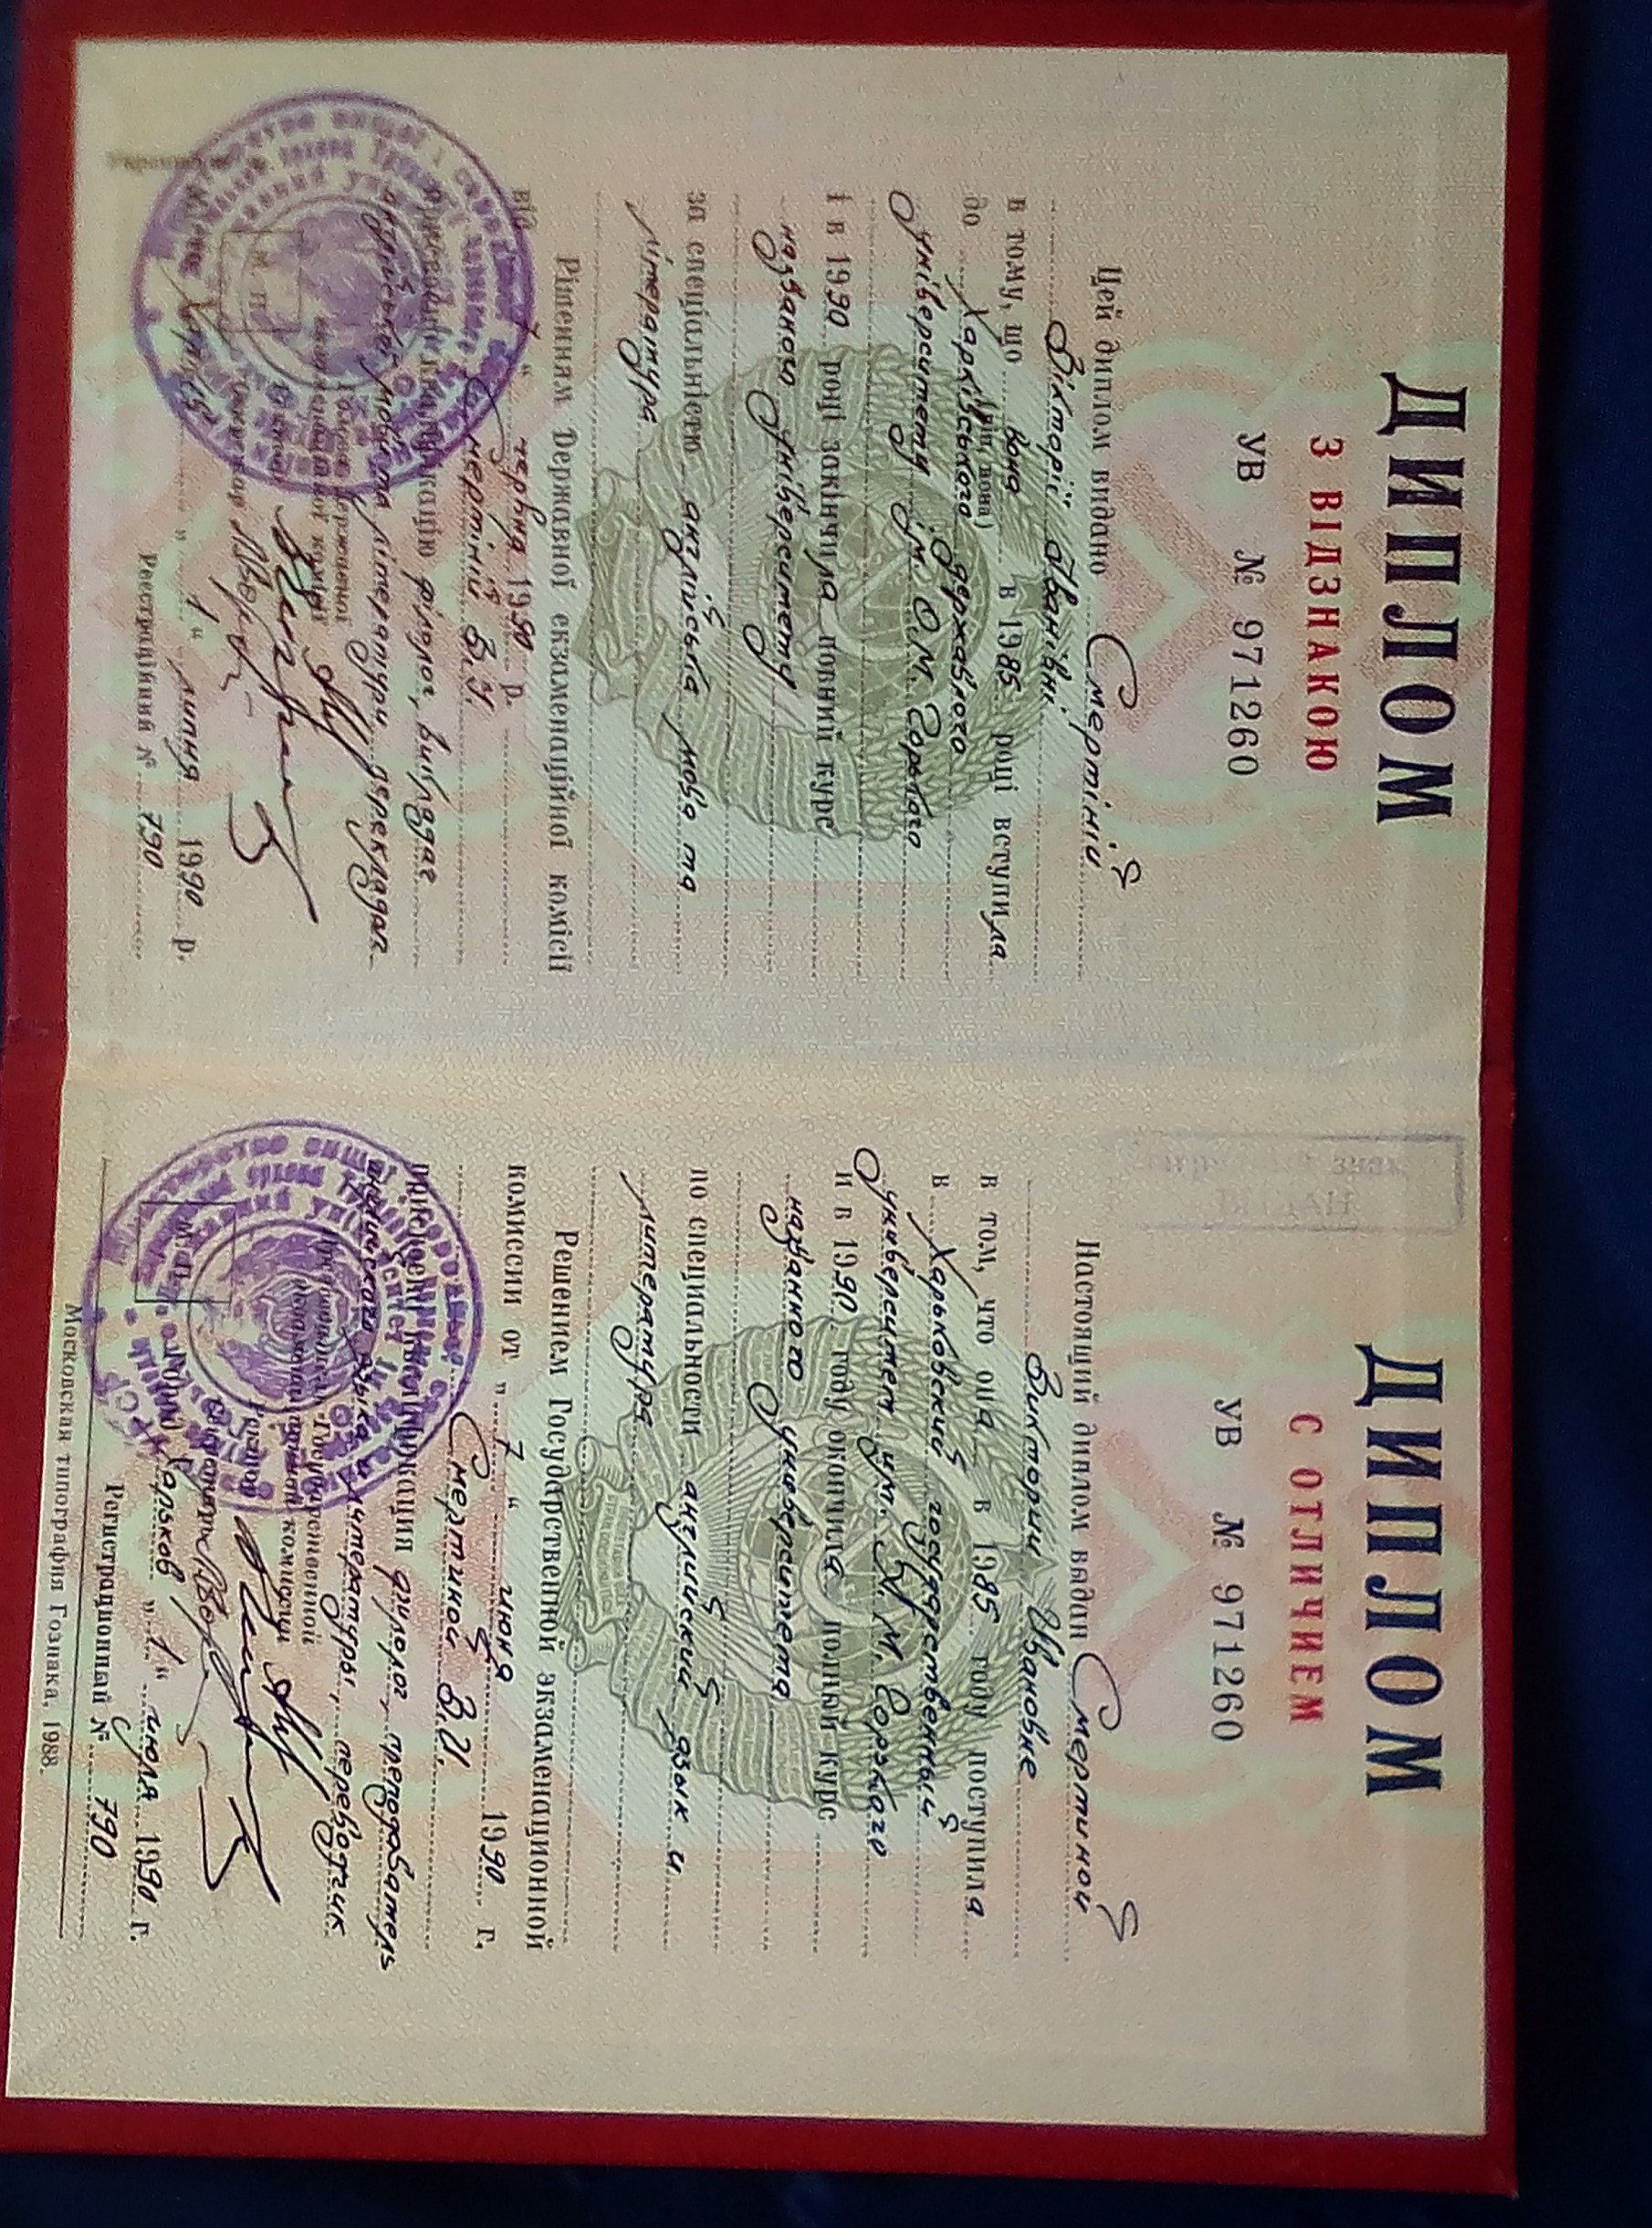 ДИПЛОМ
З ВІДЗНАКОЮ
УВ № 971260
Цей диплом видано Смертіній
Вікторії Іванівні
в тому, що вона в 1985 році вступила
(він, вона)
до Харківського державного
університету ім. О.М. Горького
і в 1990 році закінчила повний курс
названого університету
за спеціальністю англійська мова та
література
Рішенням Державної екзаменаційної комісії
від 7 " червня 1990 р.
Смертіній В.І.
присвоєно кваліфікацію філолог, викладач
англійської мови та літератури, перекладач
М. П.
Харків " 1 " липня 1990 р.
Реєстраційний № 790
ДИПЛОМ
С ОТЛИЧИЕМ
УВ № 971260
Настоящий диплом выдан Смертиной
Виктории Ивановне
в том, что она в 1985 году поступила
в Харьковский государственный
университет им. А.М. Горького
и в 1990 году окончила полный курс
названного университета
по специальности английский язык и
литература
Решением Государственной экзаменационной
комиссии от " 7 " июня 1990 г.
Смертиной В.И.
присвоена квалификация филолог, преподаватель
английского языка и литературы, переводчик
Государственной
комиссии
М. П.
Ректор
Харьков " 1 " июля 1990 г.
Регистрационный № 790
Московская типография Гознака. 1988.